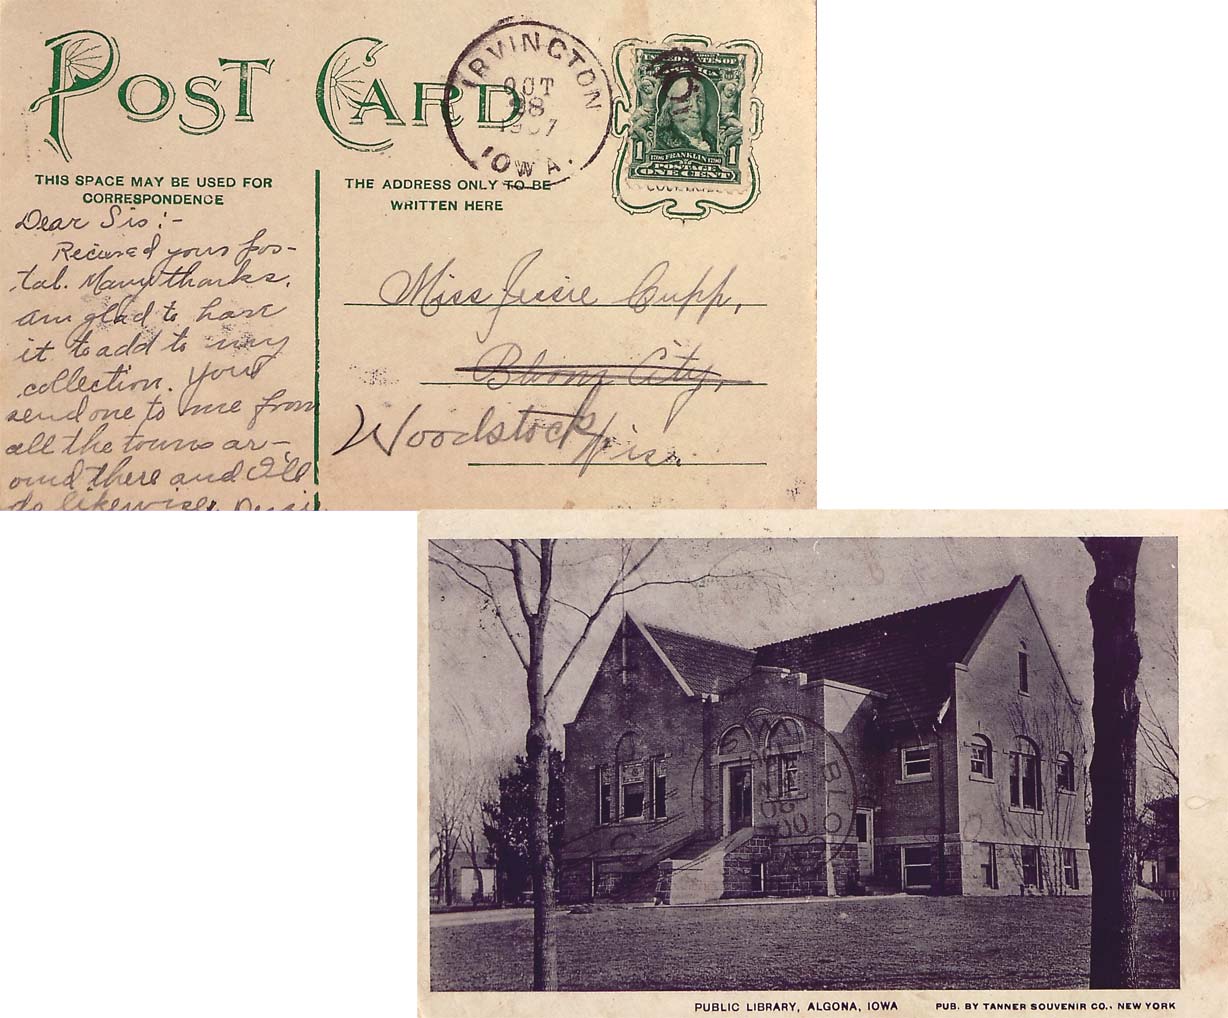 POST CARD
IRVINGTON
OCT
28
1907
IOWA.
UNITED STATES OF
AMERICA
1706 FRANKLIN 1790
1 POSTAGE 1
ONE CENT
THIS SPACE MAY BE USED FOR
CORRESPONDENCE
THE ADDRESS ONLY TO BE
WRITTEN HERE
Dear Sis:-
Recieved yours pos-
tal. Many thanks.
am glad to have
it to add to my
collection. Youd
send one to me from
all the towns ar-
ound there and I'll
do likewise.
Miss Jessie Cupp,
Bloom City,
Woodstock
Wis.
BLOOM
PUBLIC LIBRARY, ALGONA, IOWA
PUB. BY TANNER SOUVENIR CO., NEW YORK